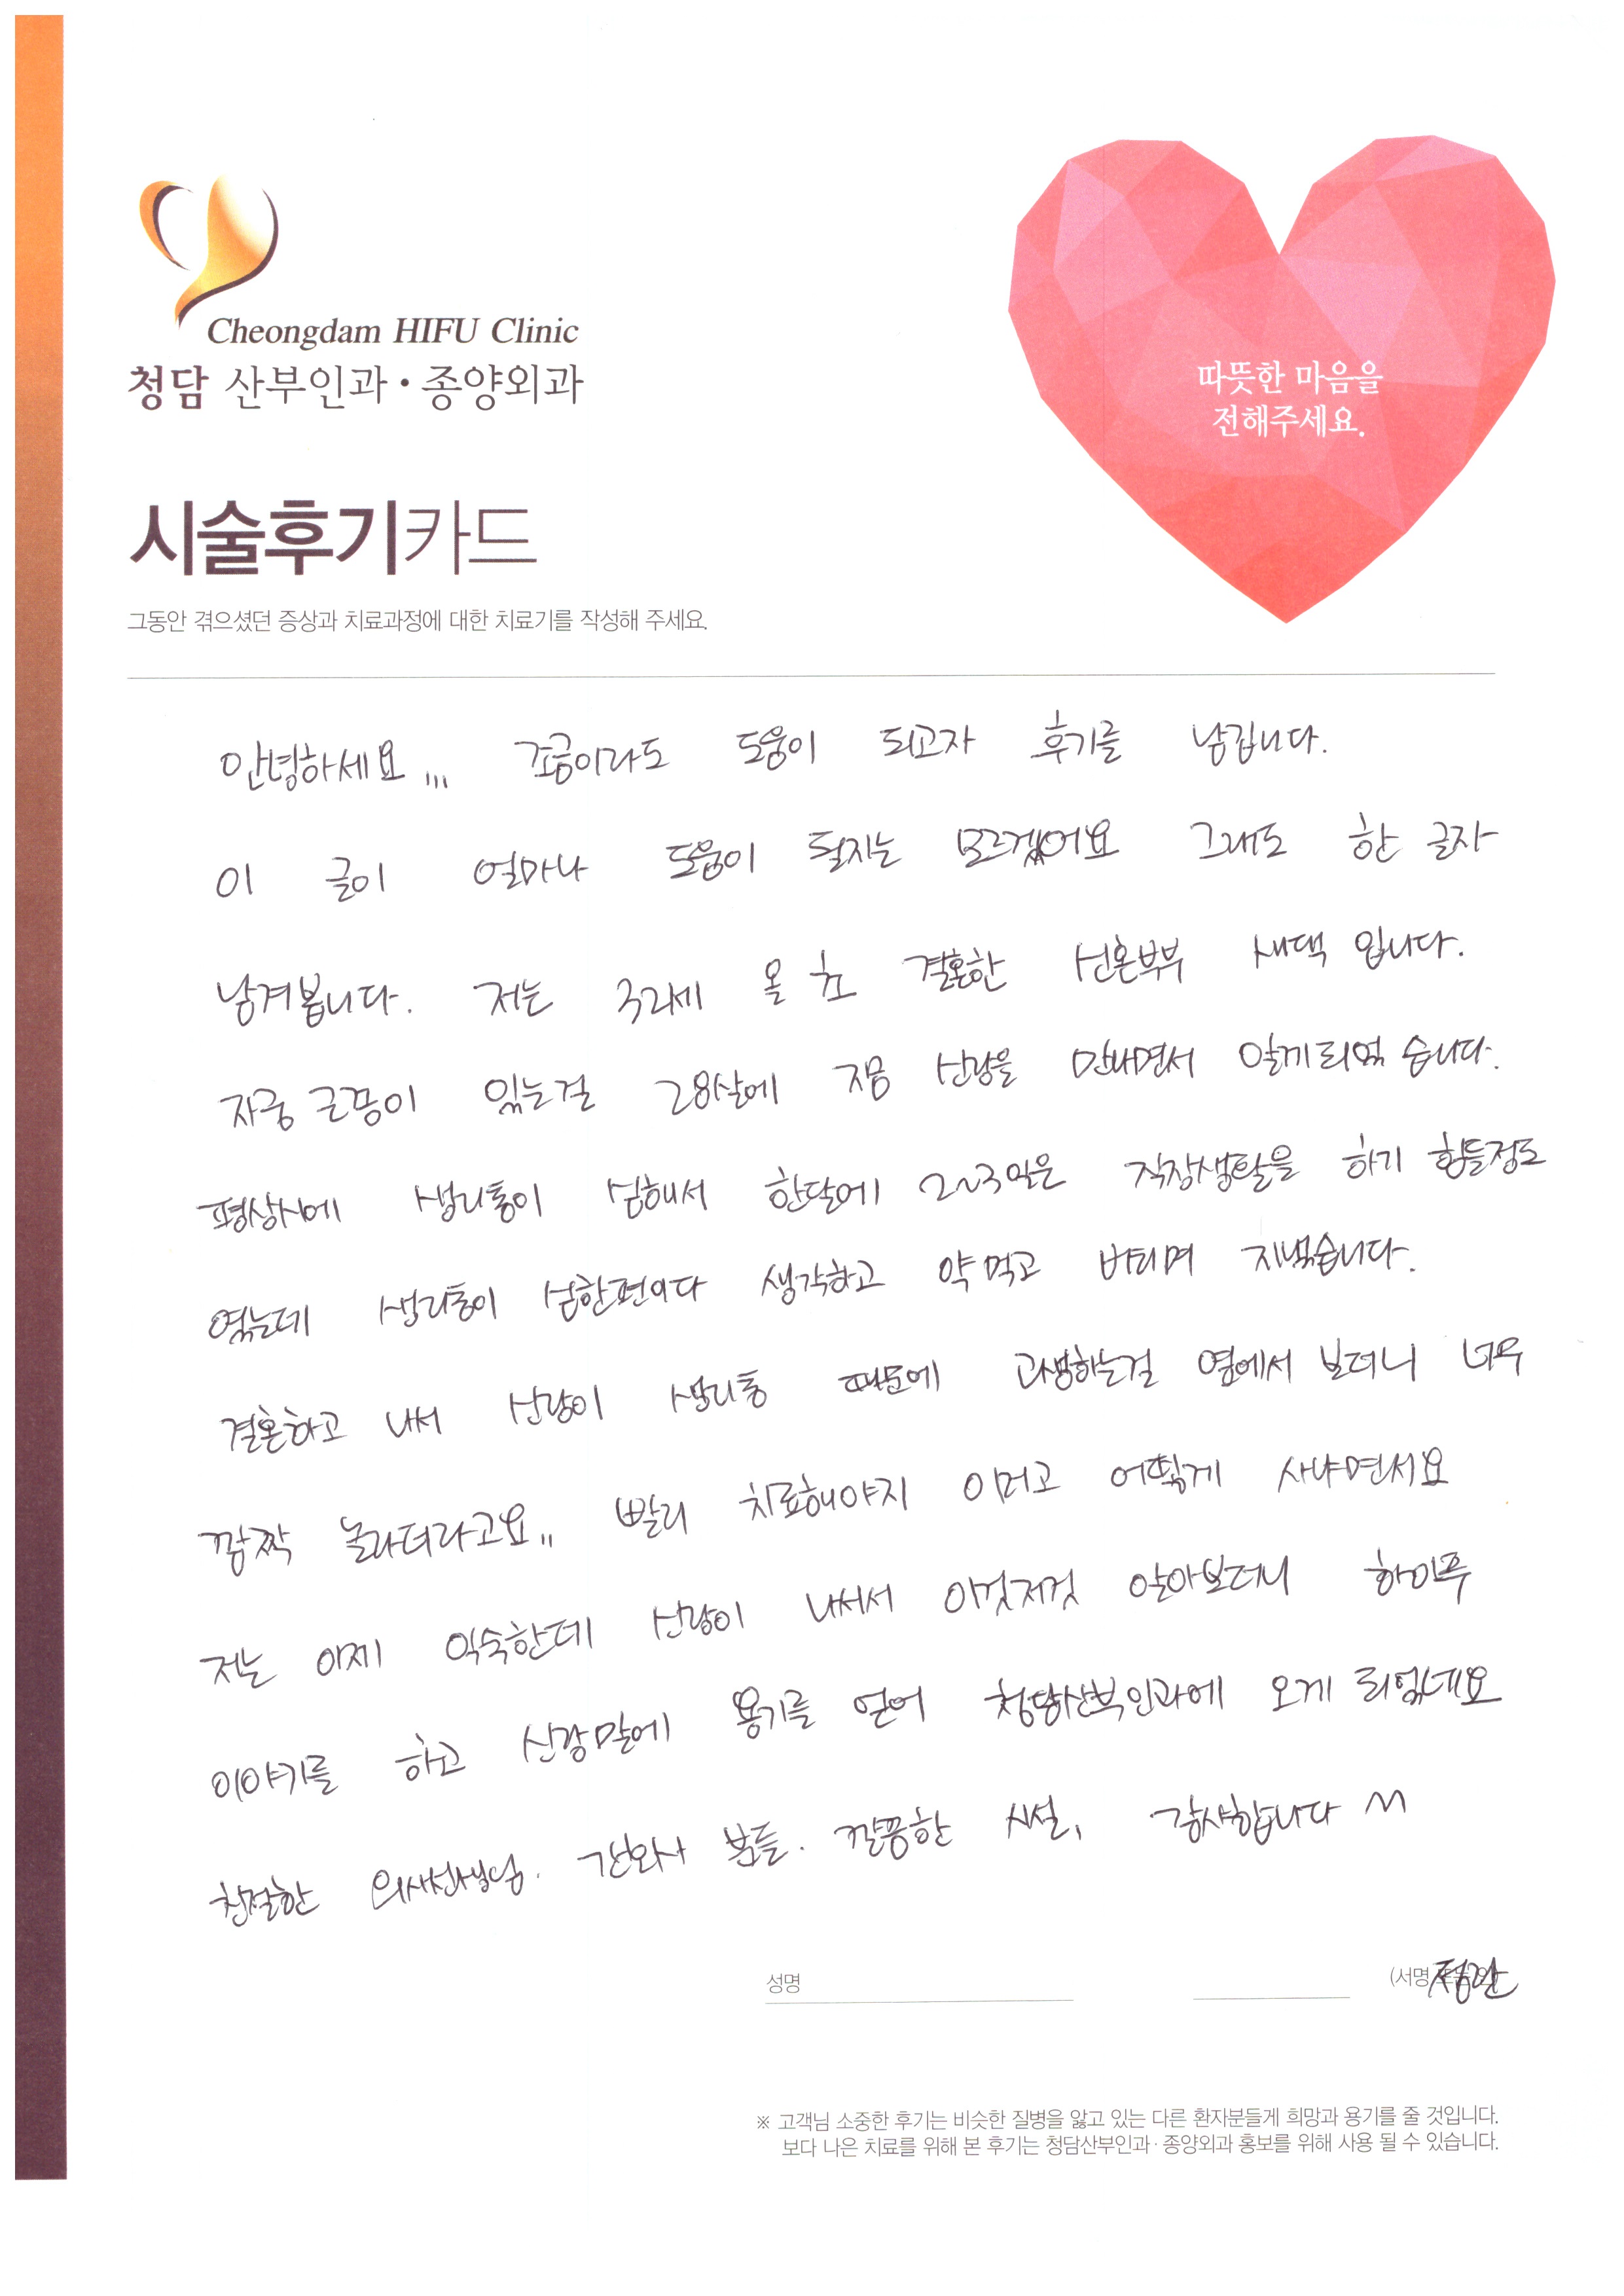 Cheongdam HIFU Clinic
청담 산부인과·종양외과
따뜻한 마음을
전해주세요.
시술후기카드
그동안 겪으셨던 증상과 치료과정에 대한 치료기를 작성해 주세요.
안녕하세요... 조금이라도 도움이 되고자 후기를 남깁니다.
이 글이 얼마나 도움이 될지는 모르겠어요 그래도 한 글자
남겨봅니다. 저는 32세 올 초 결혼한 신혼부부 새댁 입니다.
자궁 근종이 있는걸 28살에 지금 신랑을 만나면서 알게되었습니다.
평상시에 생리통이 심해서 한달에 2~3일은 직장생활을 하기 힘들정도
였는데 생리통이 심한편이다 생각하고 약먹고 버티며 지냈습니다.
결혼하고 나서 신랑이 생리통 때문에 고생하는걸 옆에서 보더니 너무
깜짝 놀라더라고요.. 빨리 치료해야지 이러고 어떻게 사냐면서요
저는 이제 익숙한데 신랑이 나서서 이것저것 알아보더니 하이푸
이야기를 하고 신랑말에 용기를 얻어 청담산부인과에 오게 되었네요
친절한 의사선생님. 간호사 분들. 깔끔한 시설, 감사합니다 ^^
성명
(서명
※ 고객님 소중한 후기는 비슷한 질병을 앓고 있는 다른 환자분들게 희망과 용기를 줄 것입니다.
보다 나은 치료를 위해 본 후기는 청담산부인과·종양외과 홍보를 위해 사용 될 수 있습니다.